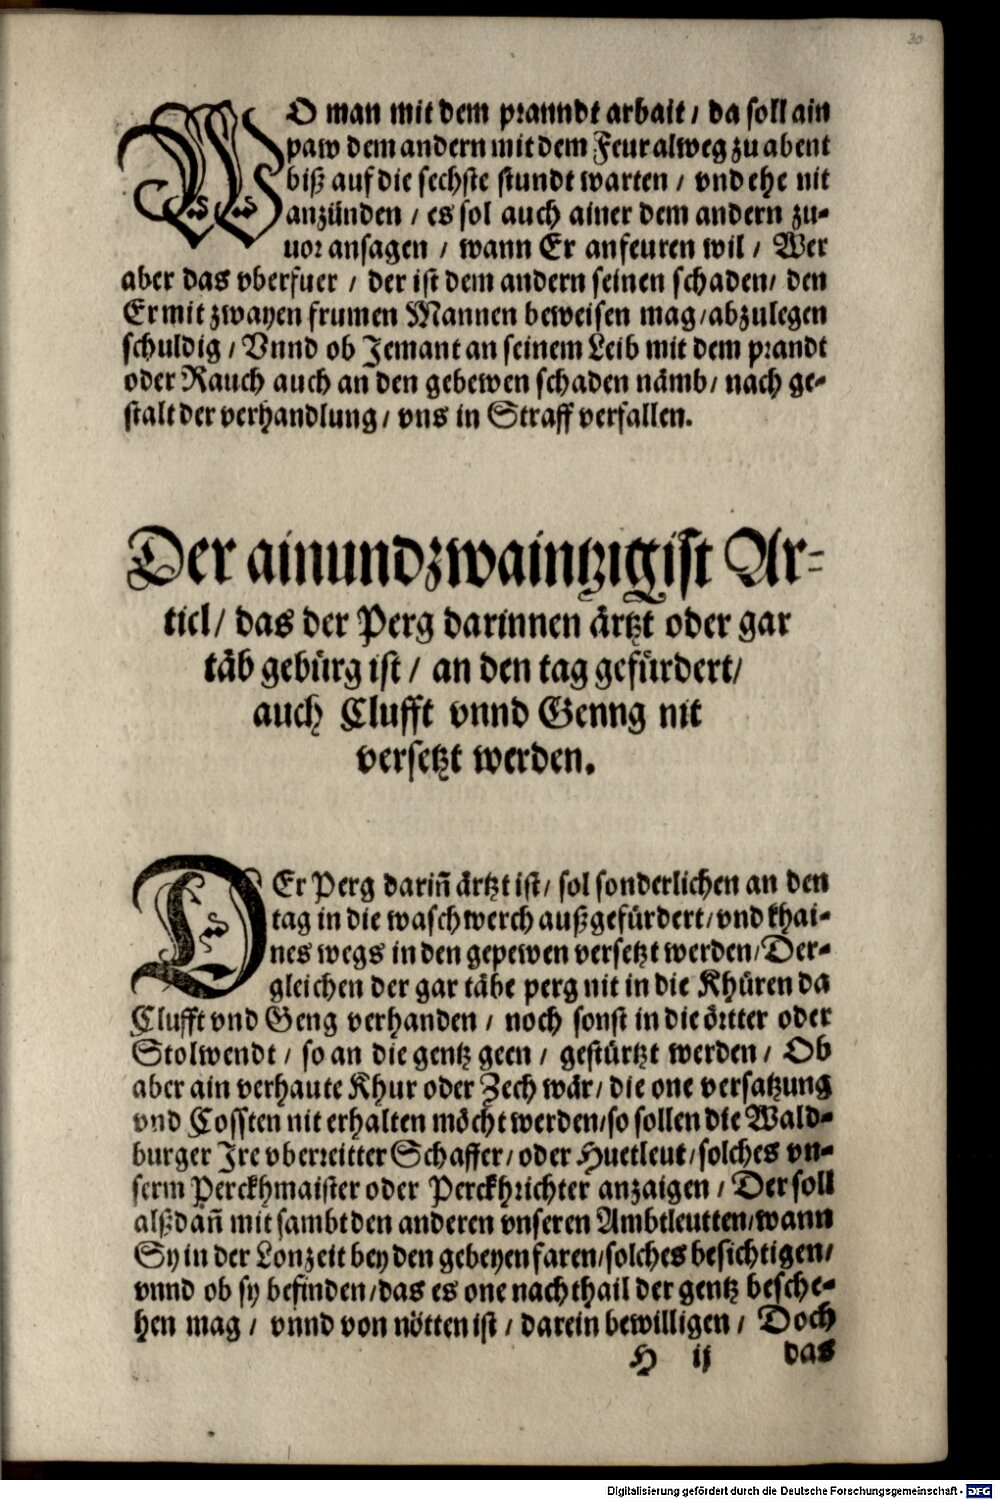 30
WO man mit dem pranndt arbait / da soll ain
paw dem andern mit dem Feur alweg zu abent
biß auf die sechste stundt warten / vnd ehe nit
anzünden / es sol auch ainer dem andern zu-
uor ansagen / wann Er anfeuren wil / Wer
aber das vberfuer / der ist dem andern seinen schaden / den
Er mit zwayen frumen Mannen beweisen mag / abzulegen
schuldig / Vnnd ob Jemant an seinem Leib mit dem prandt
oder Rauch auch an den gebewen schaden nämb / nach ge-
stalt der verhandlung / vns in Straff verfallen.
Der ainundzwaintzigist Ar-
ticl / das der Perg darinnen ärtzt oder gar
täb gebürg ist / an den tag gefürdert /
auch Clufft vnnd Genng nit
versetzt werden.
DEr Perg dariñ ärtzt ist / sol sonderlichen an den
tag in die waschwerch außgefürdert / vnd khai-
nes wegs in den gepewen versetzt werden / Der-
gleichen der gar täbe perg nit in die Khüren da
Clufft vnd Geng verhanden / noch sonst in die örtter oder
Stolwendt / so an die gentz geen / gestürtzt werden / Ob
aber ain verhaute Khur oder Zech wär / die one versatzung
vnd Cossten nit erhalten möcht werden / so sollen die Wald-
burger Jre vberreitter Schaffer / oder Huetleut / solches vn-
serm Perckhmaister oder Perckhrichter anzaigen / Der soll
alßdañ mit sambt den anderen vnseren Ambtleutten / wann
Sy in der Lonzeit bey den gebeyen faren / solches besichtigen /
vnnd ob sy befinden / das es one nachthail der gentz besche-
hen mag / vnnd von nötten ist / darein bewilligen / Doch
H ij das
Digitalisierung gefördert durch die Deutsche Forschungsgemeinschaft - DFG